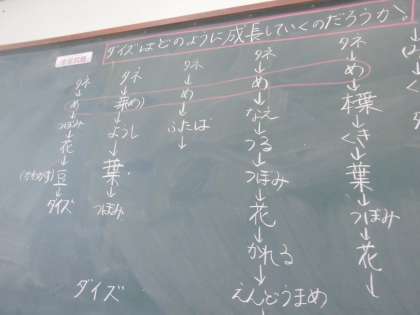 ダイズはどのように成長していくのだろうか。
タネ↓め↓本葉↓くき↓葉↓つぼみ↓花↓
タネ↓め↓なえ↓つる↓つぼみ↓花↓かれる↓えんどうまめ
タネ↓め↓ふたば↓
タネ↓芽(め)↓ようし↓葉↓つぼみ
タネ↓め↓つぼみ↓花↓豆↓ダイズ
ダイズ